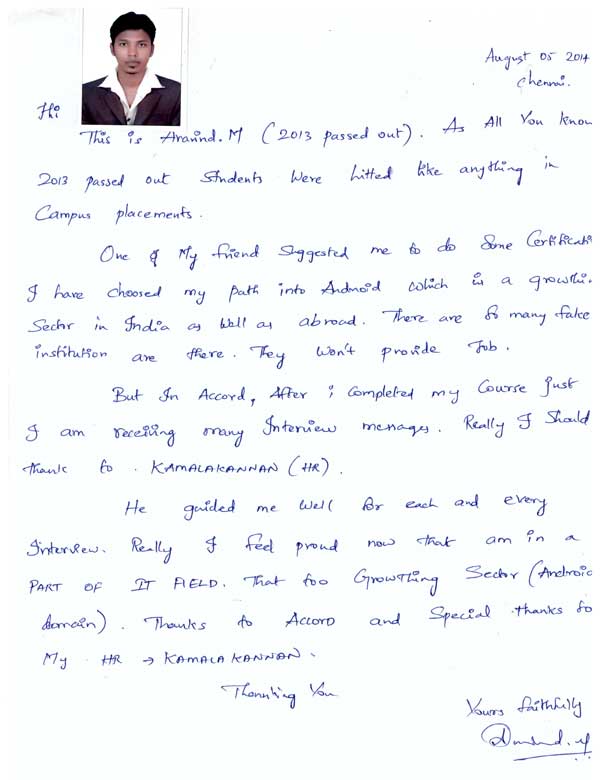 August 05 2014
Chennai.
Hi
This is Aravind.M (2013 passed out). As All You know
2013 passed out Students Were hitted like anything in
Campus placements.
One of My friend Suggested me to do Some Certificati
I have choosed my path into Android which is a growthi
Sector in India as well as abroad. There are So many fake
institution are there. They Won't provide Job.
But In Accord, After i completed my Course just
I am receiving many Interview messages. Really I Should
thank to. KAMALAKANNAN (HR).
He guided me Well for each and every
Interview. Really I feel proud now that am in a
PART OF IT FIELD. That too Growthing Sector (Androi
domain). Thanks to Accord and Special thanks fo
My HR → KAMALAKANNAN.
Thanking You
Yours faithfully